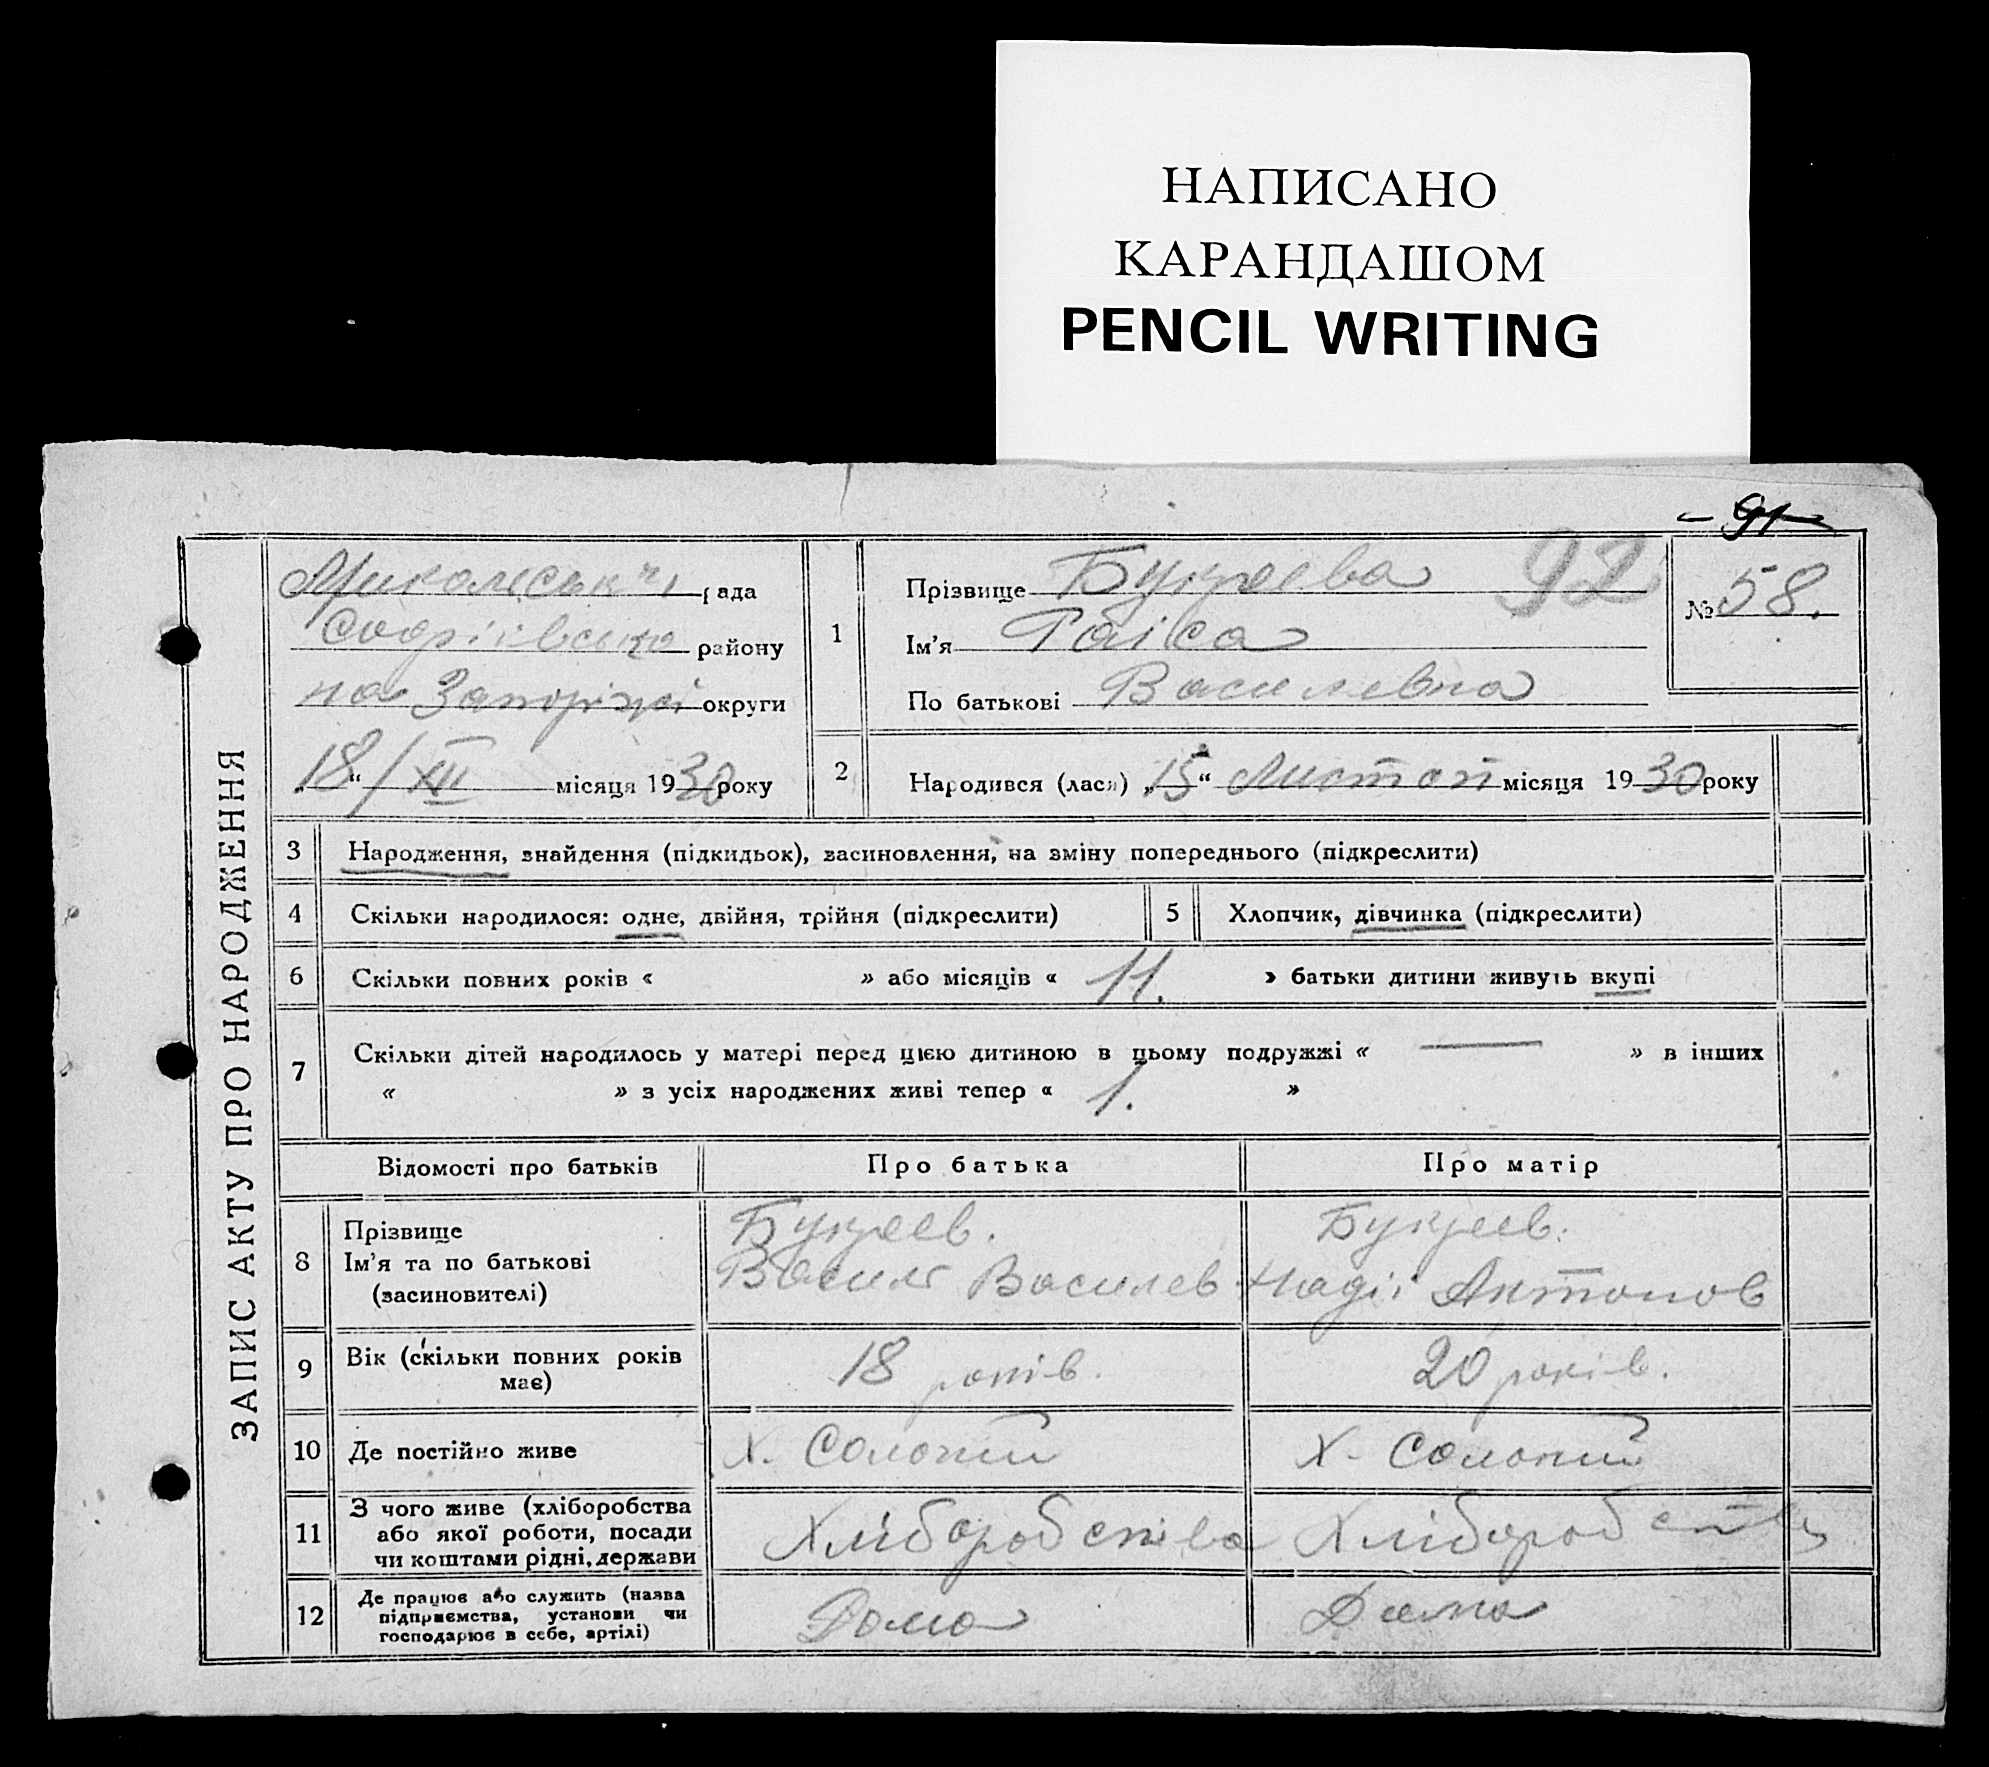 НАПИСАНО
КАРАНДАШОМ
PENCIL WRITING
91
92
ЗАПИС АКТУ ПРО НАРОДЖЕННЯ
рада
району
на Запоріжі округи
18/XII місяця 1930 року
1
Прізвище Букреева
Ім'я Раіса
По батькові Василевна
№ 58.
2 Народився (лась) „15“ Листоп місяця 1930 року
3 Народження, знайдення (підкидьок), засиновлення, на зміну попереднього (підкреслити)
4 Скільки народилося: одне, двійня, трійня (підкреслити)
5 Хлопчик, дівчинка (підкреслити)
6 Скільки повних років « » або місяців « 11. » батьки дитини живуть вкупі
7 Скільки дітей народилось у матері перед цією дитиною в цьому подружжі « — » в інших
« » з усіх народжених живі тепер « 1. »
Відомості про батьків Про батька Про матір
8 Прізвище
Ім'я та по батькові
(засиновителі)
Букреев.
Василь Василев
Букреев.
Надіі Антонов
9 Вік (скільки повних років
має)
18 років.
20 років.
10 Де постійно живе
х. Солопи
х. Солопи
11 З чого живе (хліборобства
або якої роботи, посади
чи коштами рідні, держави
Хліборобства
Хліборобств
12 Де працює або служить (назва
підприємства, установи чи
господарює в себе, артілі)
Дома
Дома